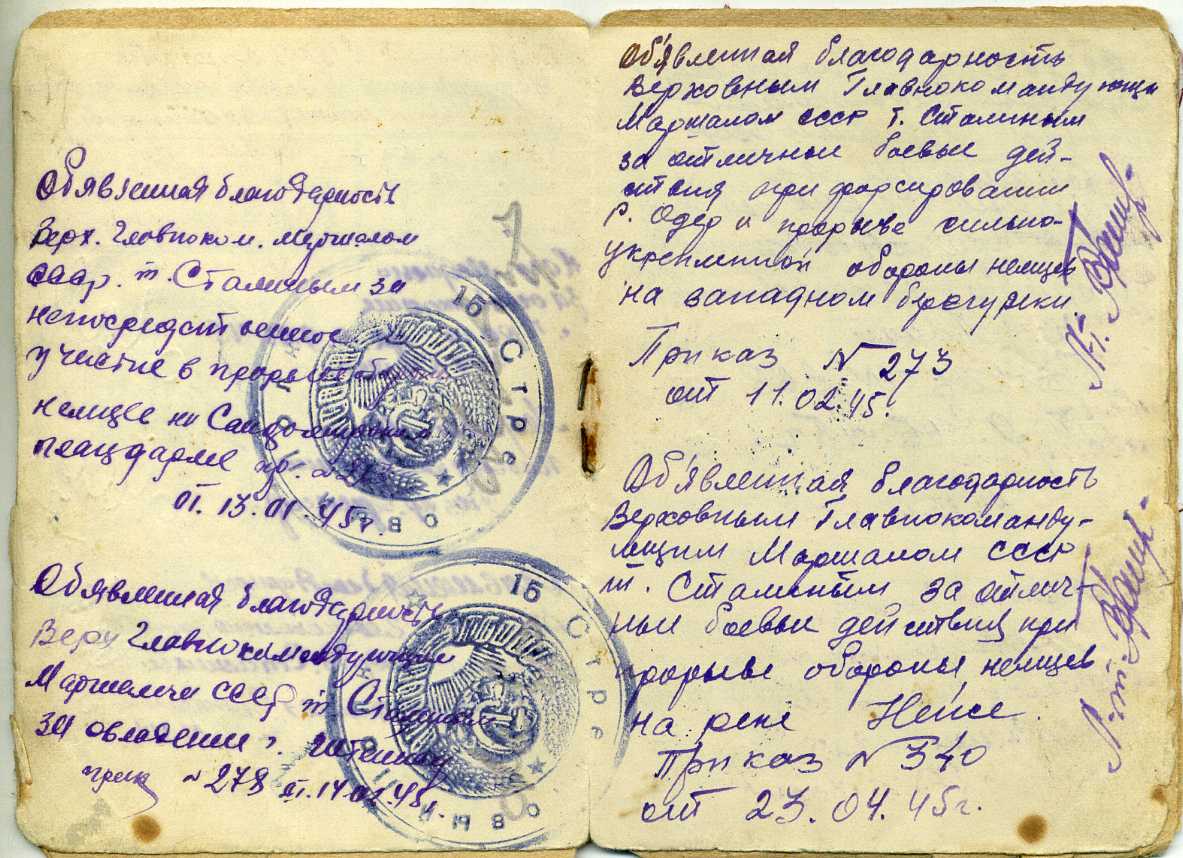 Объявленная благодарность
Верх. Главноком. Маршалом
СССР. т. Сталиным за
непосредственное
участие в прорыве
немцев на Сандомирском
плацдарме пр. №
от. 13.01.45г.
Объявленная благодарность
Верх Главнокомандующим
Маршалом СССР т Сталиным
за овладение г.
№ 278 от. 14.02.45г.
15 Стре
15 Стре
Об'явленная благодарность
Верховным Главнокомандующим
Маршалом СССР т. Сталиным
за отличные боевые дей-
ствия при форсировании
р. Одер и прорыве сильно-
укрепленной обороны немцев
на западном берегу реки
Приказ № 273
от 11.02.45г.
Об'явленная благодарность
Верховным Главнокоманду-
ющим Маршалом СССР
т. Сталиным за отлич-
ные боевые действия при
прорыве обороны немцев
на реке Нейсе.
Приказ № 340
от 23.04.45г.